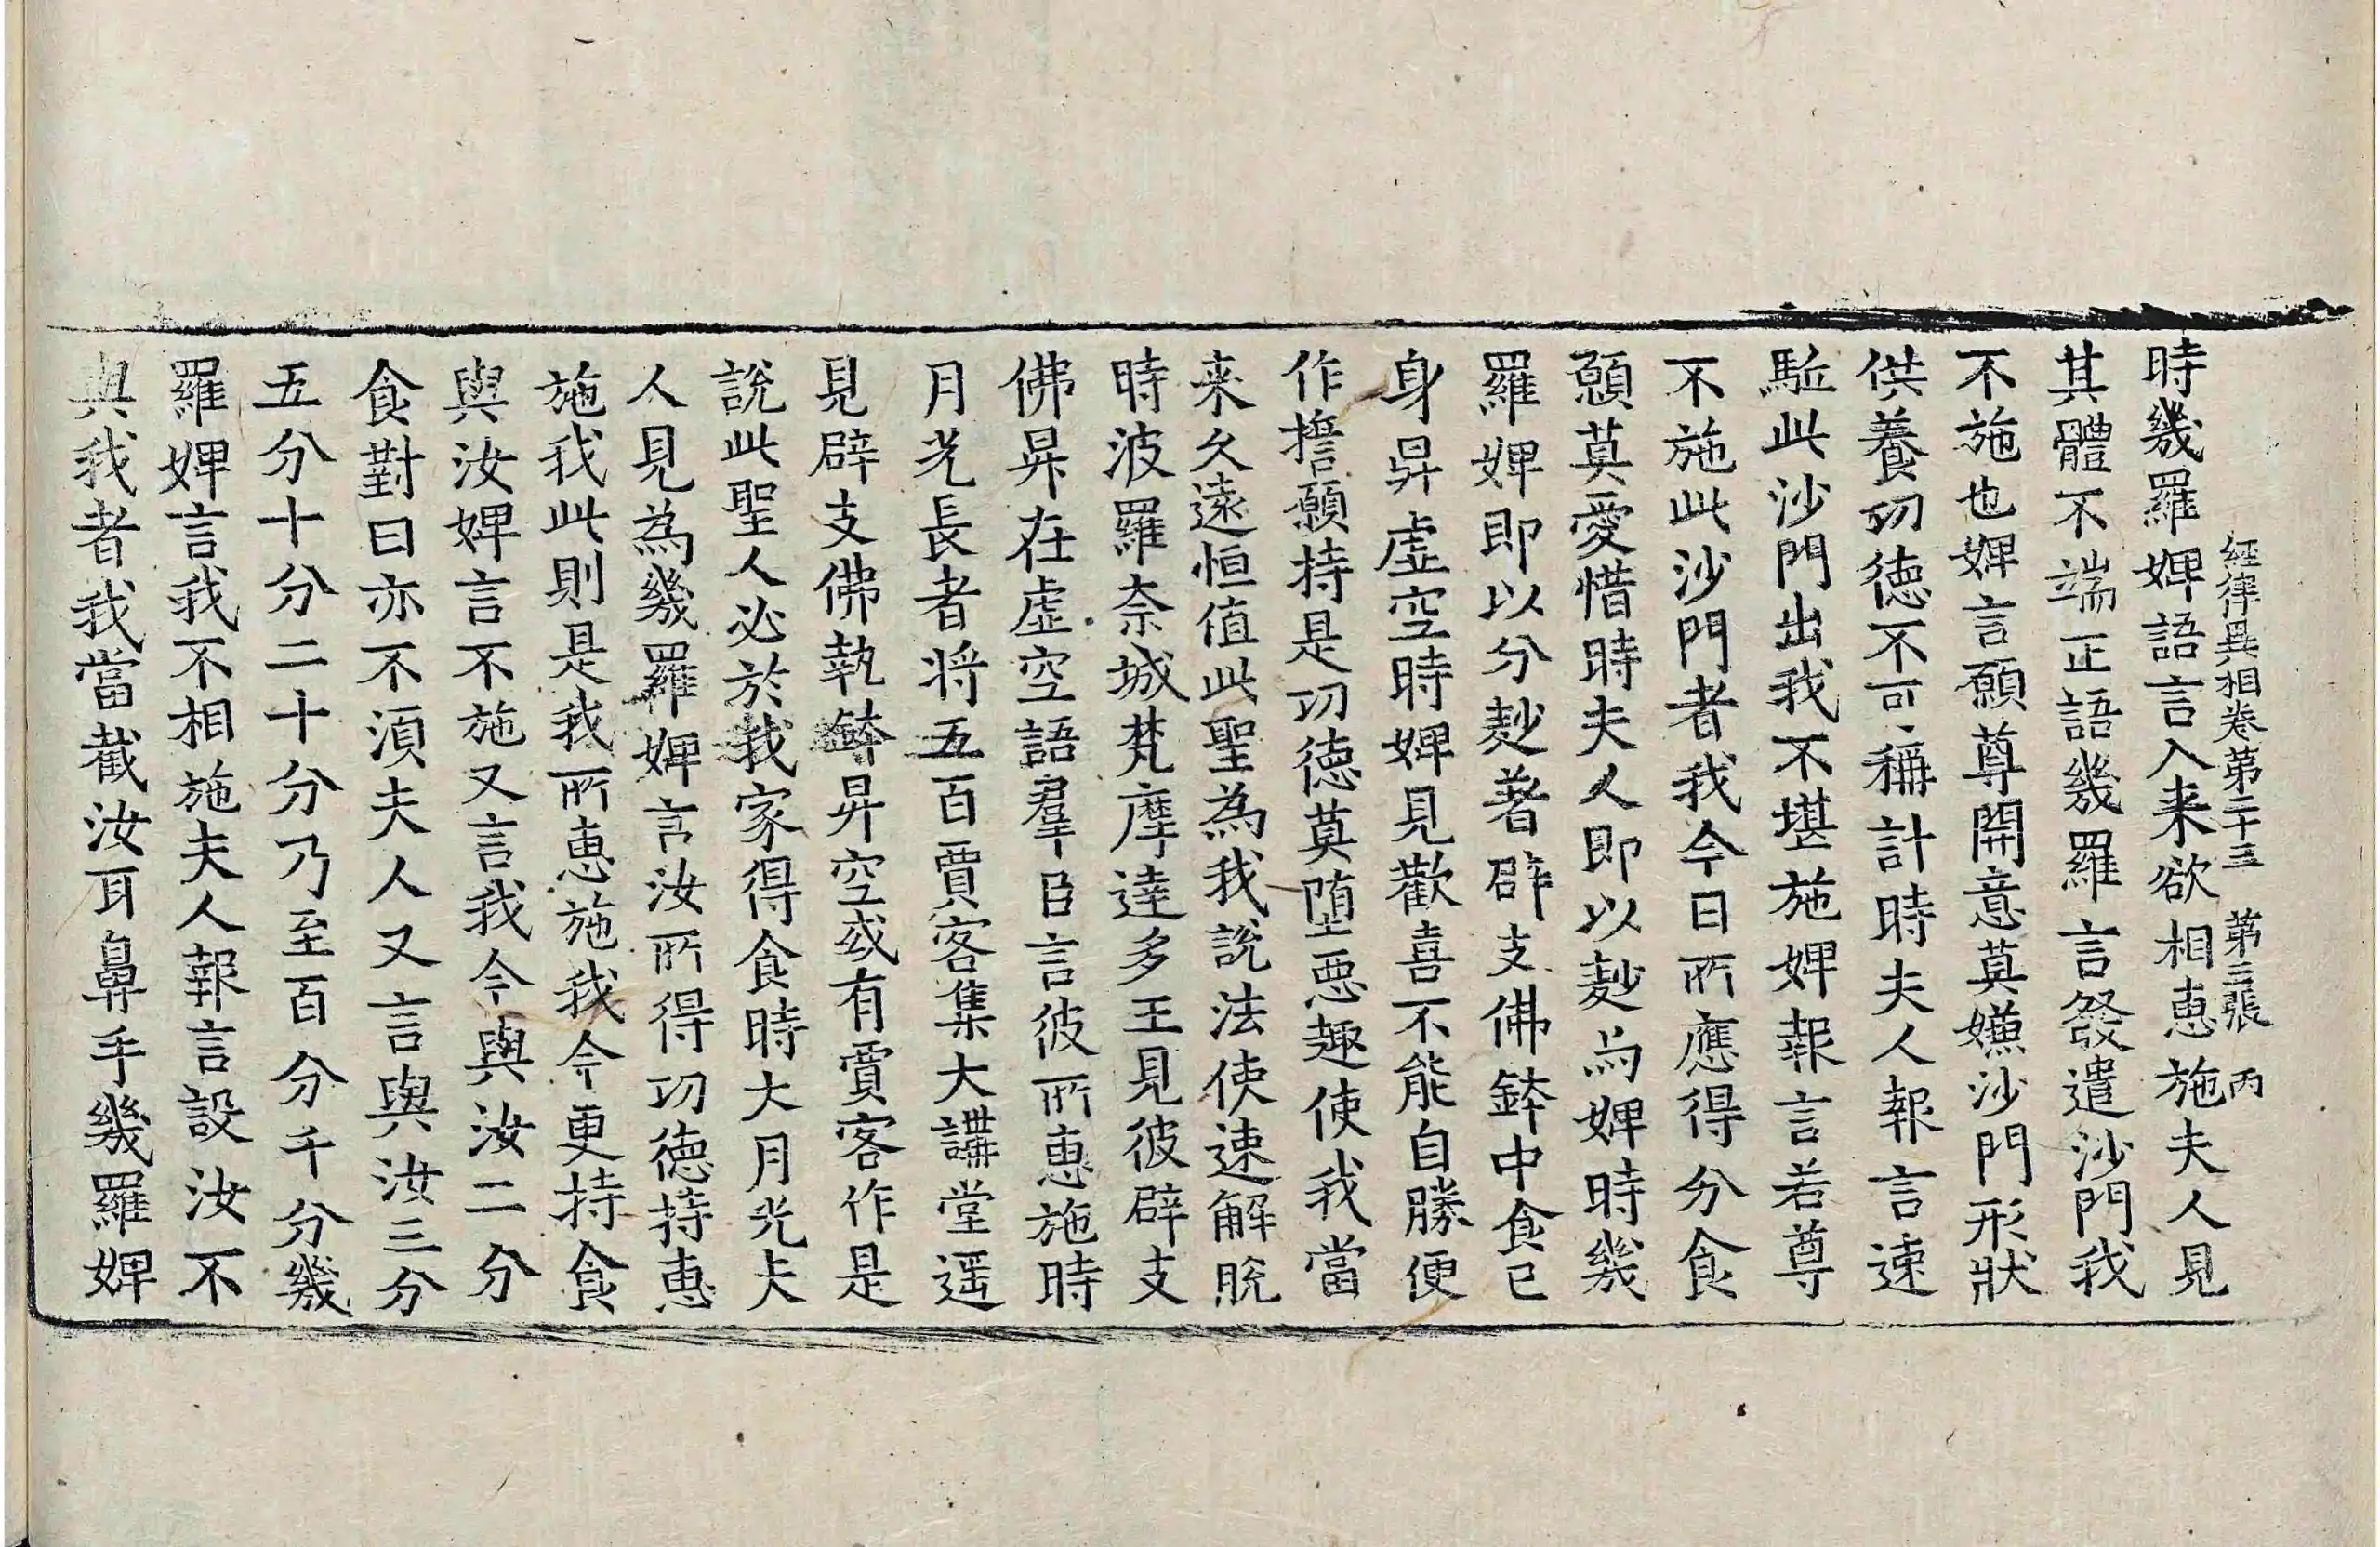 經律異相卷第二十三 第三張 丙
時幾羅婢語言入来欲相惠施夫人見
其體不端正語幾羅言發遣沙門我
不施也婢言願尊開意莫嫌沙門形狀
供養功德不可稱計時夫人報言速
駈此沙門出我不堪施婢報言若尊
不施此沙門者我今日所應得分食
願莫愛惜時夫人即以麨與婢時幾
羅婢即以分麨著辟支佛鉢中食已
身昇虛空時婢見歡喜不能自勝便
作擔願持是功德莫墮惡趣使我當
来久遠恒值此聖為我說法使速解脫
時波羅奈城梵摩達多王見彼辟支
佛昇在虛空語羣臣言彼所惠施時
月光長者將五百賈客集大講堂遥
見辟支佛執鉢昇空或有賈客作是
說此聖人必於我家得食時大月光夫
人見為幾羅婢言汝所得功德持惠
施我此則是我所惠施我今更持食
與汝婢言不施又言我今與汝二分
食對曰亦不湏夫人又言與汝三分
五分十分二十分乃至百分千分幾
羅婢言我不相施夫人報言設汝不
與我者我當截汝耳鼻手幾羅婢